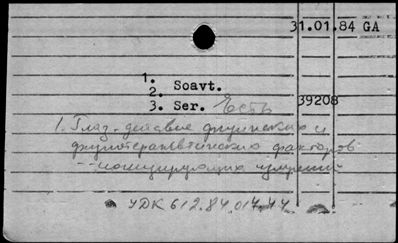 31.01.84 GA
1.
2. Soavt.
3. Ser. Есть
39208
1. Глаз - действие физических и
физиотерапевтических факторов
-- ионизирующих излучений
УДК 612.84.014.44